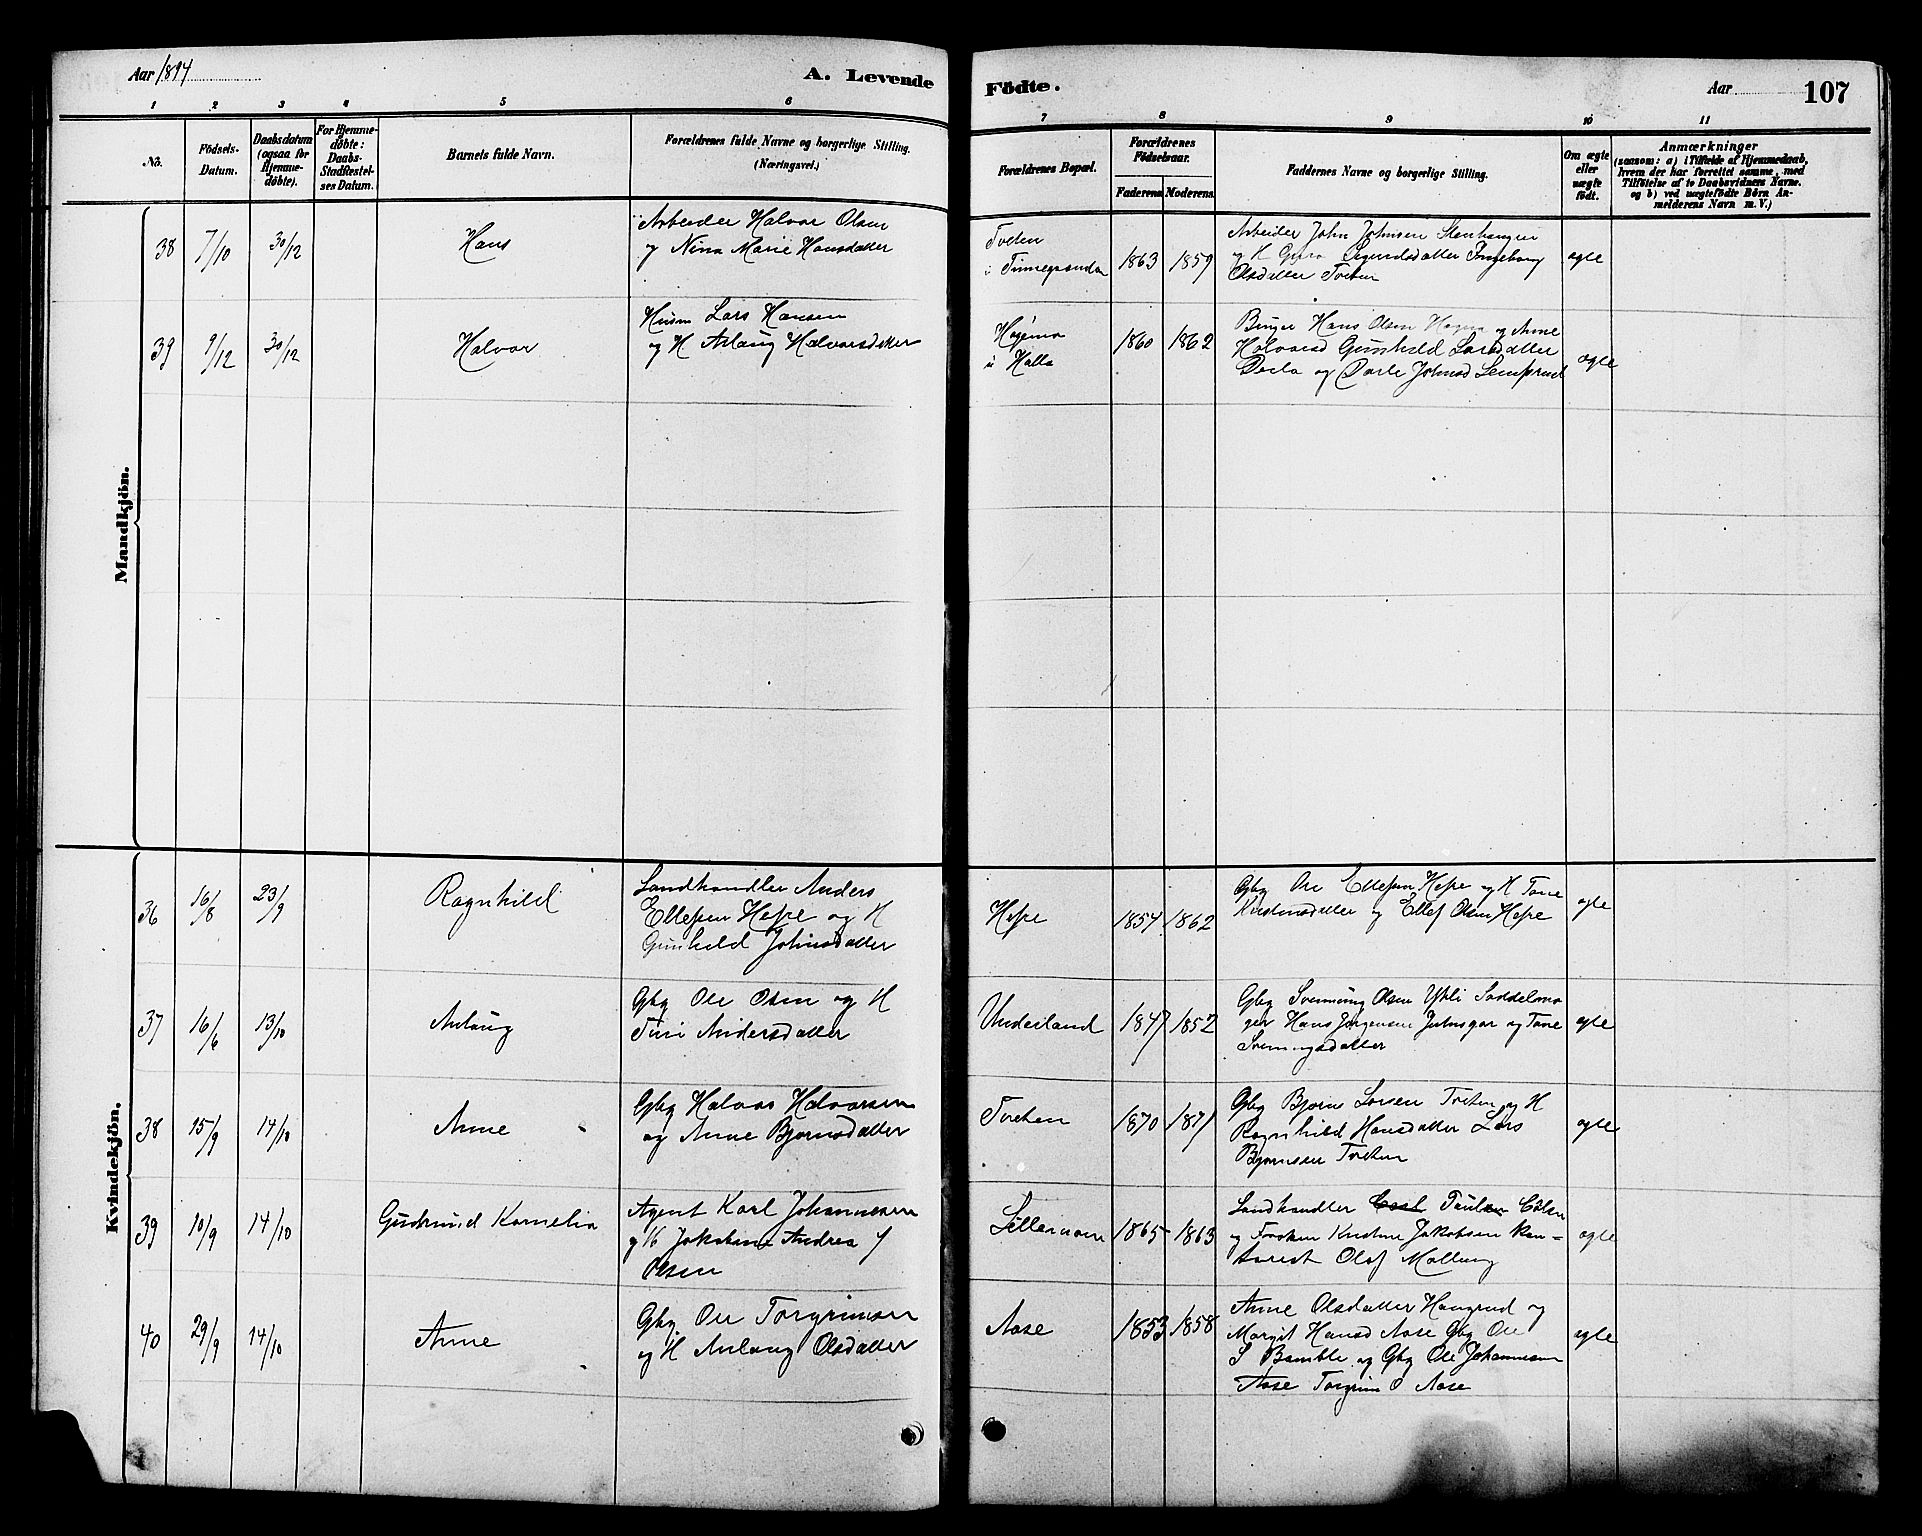 Aar 1894
A. Levende
Födte.
Aar
107
1 2 3 4 5 6 7 8 9 10 11
No.
Födsels-
Datum.
Daabsdatum
(ogsaa for
Hjemme-
döbte).
For Hjemme-
döbte:
Daabs-
Stadfæstel-
ses Datum.
Barnets fulde Navn.
Forældrenes fulde Navne og borgerlige Stilling.
(Næringsvei.)
Forældrenes Bopæl.
Forældrenes
Födselsaar.
Faderens. Moderens.
Faddernes Navne og borgerlige Stilling.
Om ægte
eller
uægte
födt.
Anmærkninger
(saasom: a) i Tilfælde af Hjemmedaab,
hvem der har forrettet samme, med
Tilföielse af to Daabsvidners Navne.
og b) ved uægtefödte Börn An-
melderens Navn m. V.)
Mandkjön.
38 7/10 30/12 Hans
Arbeider Halvor Olsen
og Nina Marie Hansdatter
Tveten
i Tinnegrenda
1863 1859
Arbeider John Johnsen
og H Gyro Sigurdsdatter Ingeborg
Olsdatter Tveten
ægte
39 9/12 30/12 Halvor
Husm Lars Hansen
og H Aslaug Halvorsdatter
Hegna
i Halla
1860 1862
Hans Olsen Hegna og Anne
Halvorsd Gunhild Larsdatter
og Johnsd
ægte
Kvindekjön.
36 16/8 23/9 Ragnhild
Landhandler Anders
Ellefsen Hope og H
Gunhild Johnsdatter
Hope
1854 1862
Gbg Ole Ellefsen Hope og H Tone
Kistensdatter og Ellef Olsen Hope
ægte
37 16/6 13/10 Aslaug
Gbg Ole Olsen og H
Turi Andersdatter
Underland
1847 1852
Gbg Svennung Olsen Ytli Saddelma
ger Hans Jörgensen og Tone
Svenungsdatter
ægte
38 15/9 14/10 Anne
Gbg Halvor Halvorsen
og Anne Bjornsdatter
Tveten
1870 1871
Gbg Bjorn Larsen Tveten og H
Ragnhild Hansdatter Lars
Bjornsen Tveten
ægte
39 10/9 14/10 Gudrund Kornelia
Agent Karl Johannesen
og H Jakobine Andrea f
Olsen
1865 1863
Landhandler
og Froken Kristine Jakobsen Kon-
torist Olaf Malling
ægte
40 29/9 14/10 Anne
Gbg Ole Torgrimsen
og H Aslaug Olsdatter
Aase
1853 1858
Anne Olsdatter Haugrud og
Margit Hansd Aase Gbg Ole
S Bamble og Gbg Ole Johannesen
Aase Torgrim O Aase
ægte